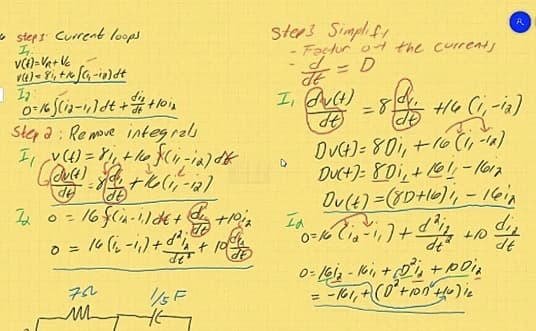 step 1: Current loops
I₁
V(t) = V_R + V_C
V(t) = 8i₁ + 16∫(i₁-i₂)dt
I₂
0 = 16∫(i₂-i₁)dt + di₂/dt + 10i₂
Step 2: Remove integrals
I₁ V(t) = 8i₁ + 16∫(i₁-i₂)dt
dv(t)/dt = 8 di₁/dt + 16(i₁-i₂)
I₂ 0 = 16∫(i₂-i₁)dt + di₂/dt + 10i₂
0 = 16(i₂-i₁) + d²i₂/dt² + 10 di₂/dt
7Ω 1/5 F
Step 3 Simplify
- Factor out the currents
- d/dt = D
I₁ dv(t)/dt = 8 di₁/dt + 16(i₁-i₂)
DV(t) = 8Di₁ + 16(i₁-i₂)
DV(t) = 8Di₁ + 16i₁ - 16i₂
DV(t) = (8D+16)i₁ - 16i₂
I₂
0 = 16(i₂-i₁) + d²i₂/dt² + 10 di₂/dt
0 = 16i₂ - 16i₁ + D²i₂ + 10Di₂
= -16i₁ + (D²+10D+16)i₂